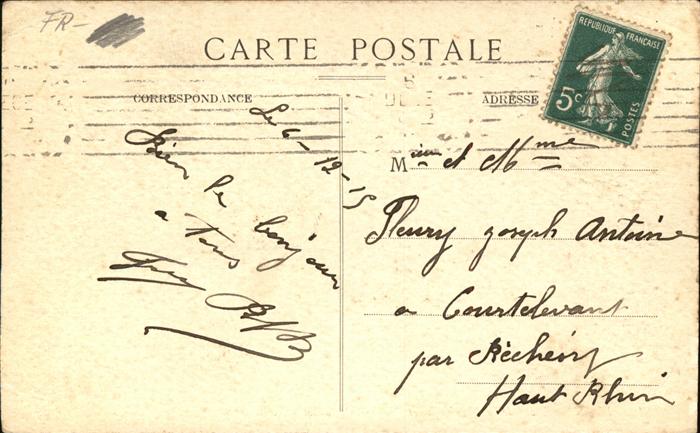 FR-
CARTE POSTALE
REPUBLIQUE FRANÇAISE
5c
POSTES
CORRESPONDANCE
ADRESSE
Le 6-12-15
Bien le bonjour
a Tous
Mieur et Mme
Fleury joseph Antoine
a Courtelevant
par Réchésy
Haut Rhin